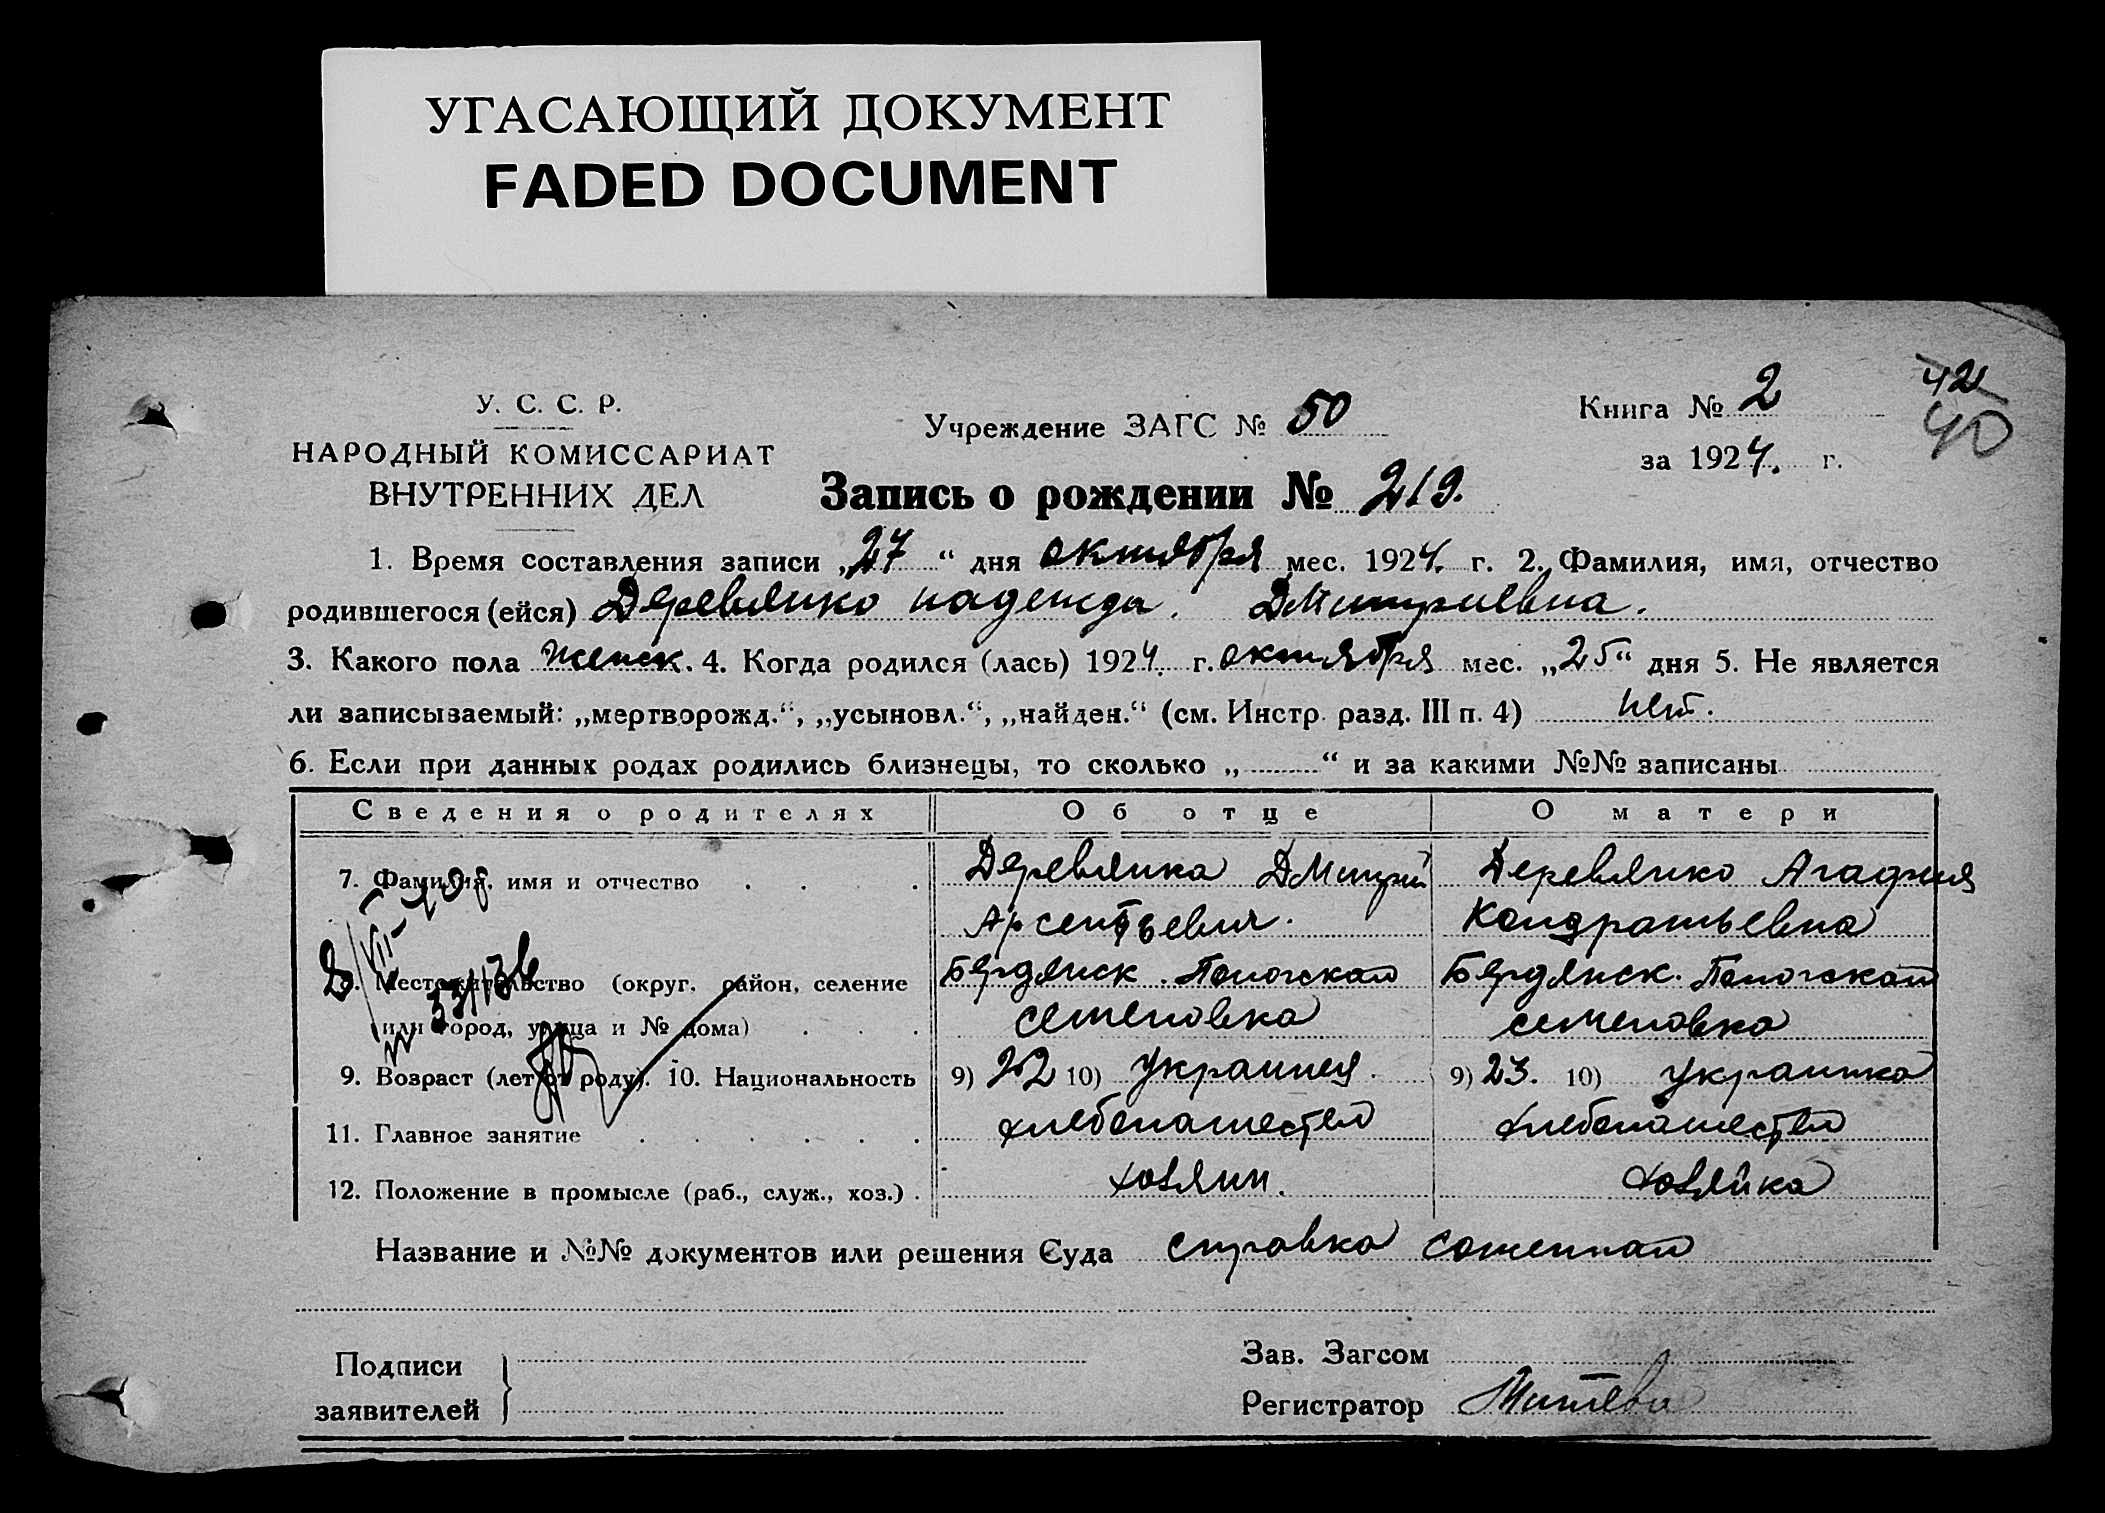 УГАСАЮЩИЙ ДОКУМЕНТ
FADED DOCUMENT
У. С. С. Р.
НАРОДНЫЙ КОМИССАРИАТ
ВНУТРЕННИХ ДЕЛ
Учреждение ЗАГС № 50
Книга № 2
42
40
за 1924. г.
Запись о рождении № 219.
1. Время составления записи „27“ дня октября мес. 1924. г. 2. Фамилия, имя, отчество
родившегося (ейся) Деревянко надежда. Дмитриевна.
3. Какого пола женск. 4. Когда родился (лась) 1924. г. октября мес. „25“ дня 5. Не является
ли записываемый: „мертворожд.“, „усыновл.“, „найден.“ (см. Инстр. разд. III п. 4) нет.
6. Если при данных родах родились близнецы, то сколько „ “ и за какими №№ записаны
Сведения о родителях Об отце О матери
7. Фамилия, имя и отчество Деревянка Дмитрий Деревянко Агафия
Арсентьевич. Кондратьевна
8. Местожительство (округ, район, селение Бердянск. Пологская Бердянск. Пологская
или город, улица и № дома) семеновка семеновка
9. Возраст (лет от роду). 10. Национальность 9) 22 10) Украинец. 9) 23. 10) Украинка
11. Главное занятие хлебопашество хлебопашество
12. Положение в промысле (раб., служ., хоз.) хозяин. хозяйка
Название и №№ документов или решения Суда справка
Подписи
заявителей
Зав. Загсом
Регистратор